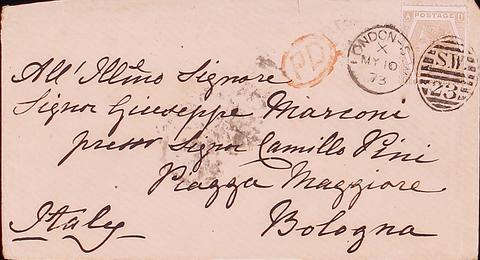 A POSTAGE I
PD
LONDON-S.W
X
MY 10
73
S.W.
23
All' Illmo Signore
Signor Giuseppe Marconi
presso Signor Camillo Pini
Piazza Maggiore
Italy Bologna